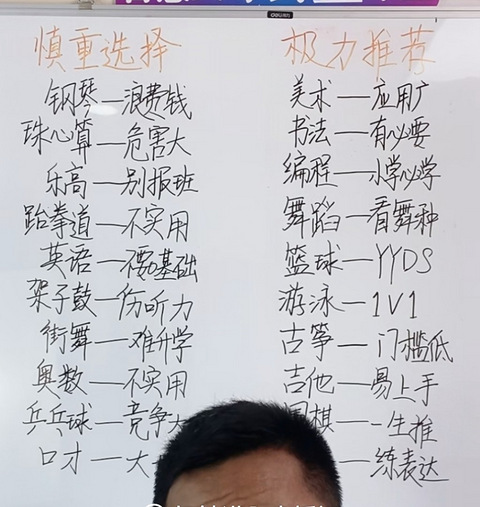 deli
慎重选择
钢琴—浪费钱
珠心算—危害大
乐高—别报班
跆拳道—不实用
英语—要基础
架子鼓—伤听力
街舞—难升学
奥数—不实用
乒乓球—竞争大
口才—大
极力推荐
美术—应用广
书法—有必要
编程—小学必学
舞蹈—看舞种
篮球—YYDS
游泳—1V1
古筝—门槛低
吉他—易上手
围棋—一生推
—练表达